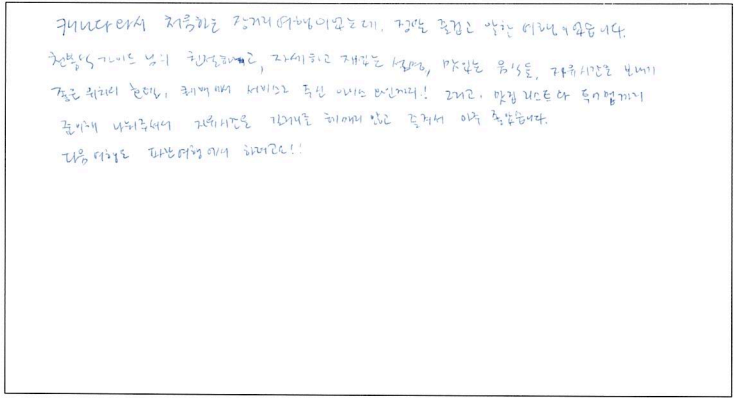 캐나다 와서 처음하는 장거리 여행이었는데, 정말 즐겁고 알찬 여행이었습니다.
가이드 님의 친절하고, 자세하고 재밌는 설명, 맛있는 음식들, 자유시간을 보내기
좋은 위치의 호텔, 서비스로 주신 아이스와인까지! 그리고, 맛집 리스트와
준비해 나눠주셔서 자유시간을 길거리로 헤매지 않고 즐겨서 아주 좋았습니다.
다음 여행도 파란여행에서 하려고요!!